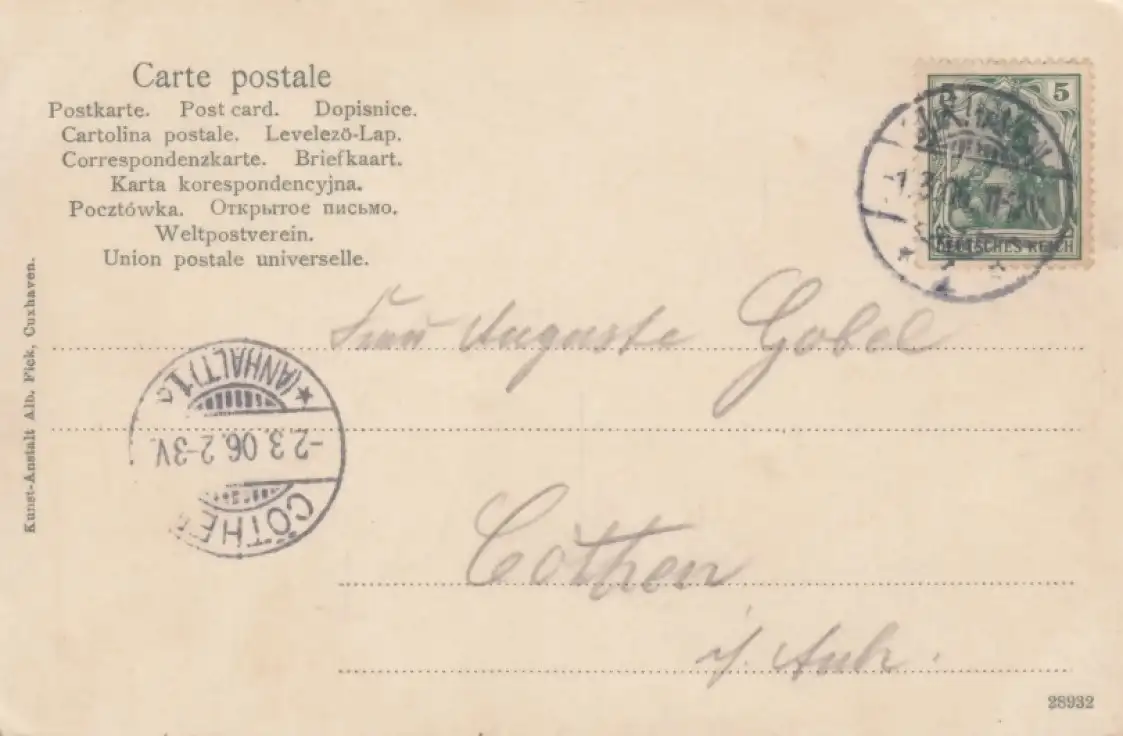 Carte postale
Postkarte. Post card. Dopisnice.
Cartolina postale. Levelező-Lap.
Correspondenzkarte. Briefkaart.
Karta korespondencyjna.
Pocztówka. Открытое письмо.
Weltpostverein.
Union postale universelle.
5 5
DEUTSCHES REICH
Frau Auguste Gobel
Cöthen
i/ Anh.
CÖTHEN
-2.3.06.2-3V.
(ANHALT) 1
Kunst-Anstalt Alb. Fick, Cuxhaven.
28932